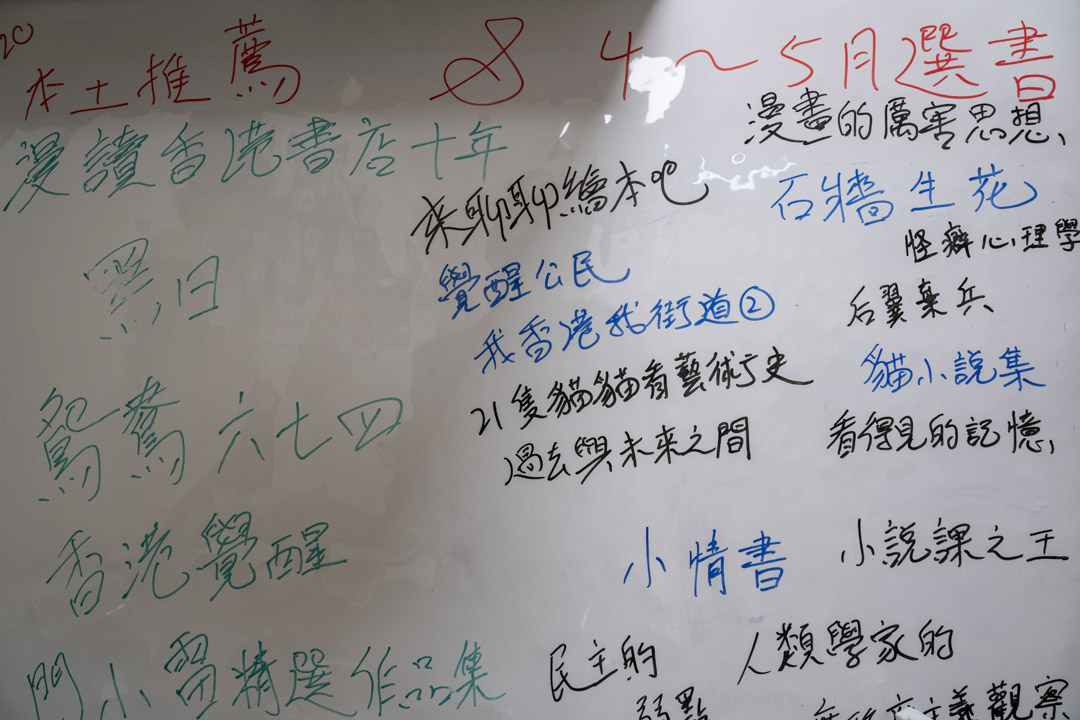 20
本土推薦 & 4~5月選書
漫讀香港書店十年
漫畫的厲害思想
來聊聊繪本吧
石牆生花
怪癖心理學
黑日
覺醒公民
我香港我街道②
后翼棄兵
21隻貓貓看藝術史
貓小說集
鴛鴦六七四
過去與未來之間
看得見的記憶
香港覺醒
小情書
小說課之王
門小雷精選作品集
民主的
弱點
人類學家的
主義觀察